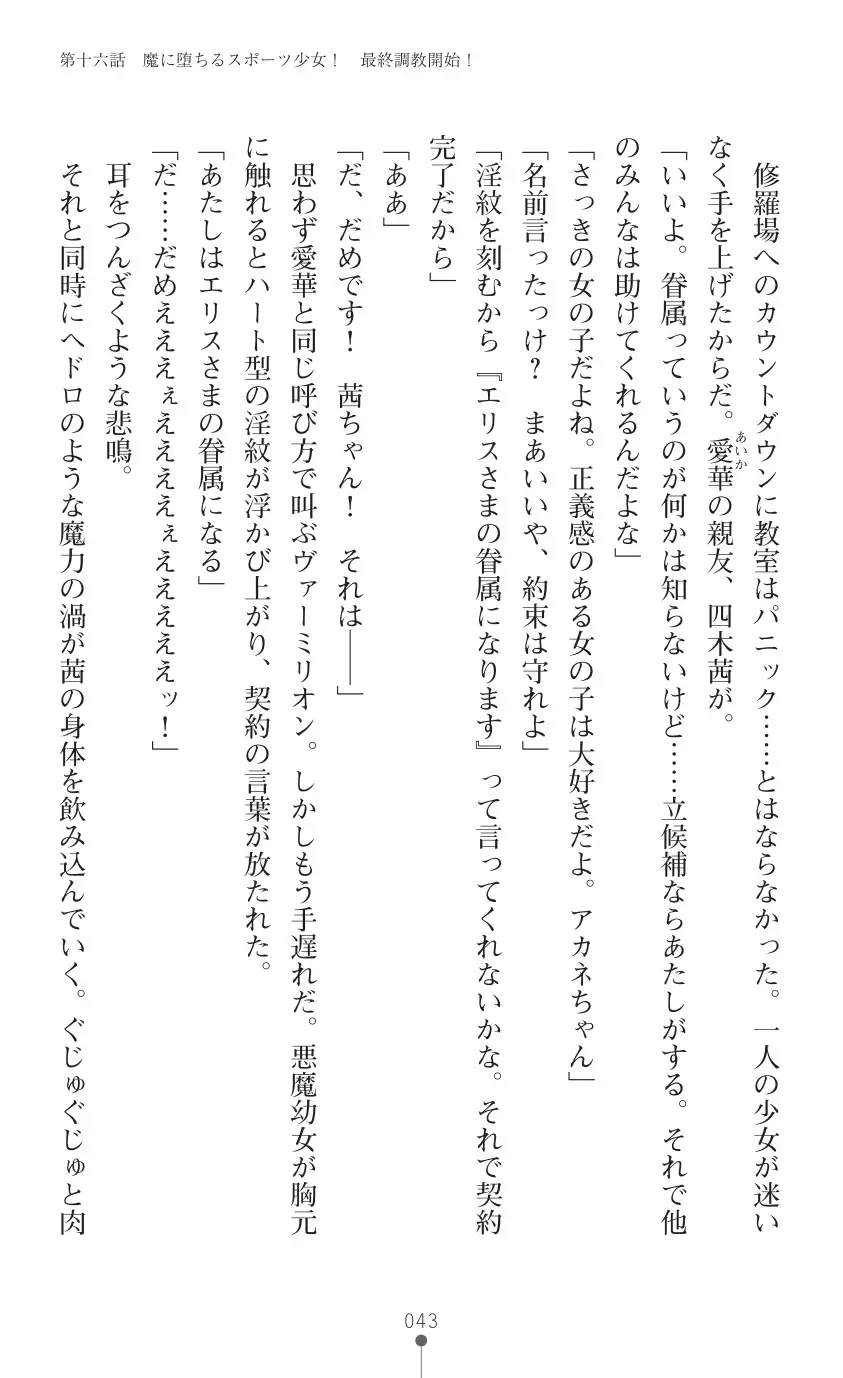 第十六話　魔に堕ちるスポーツ少女！　最終調教開始！
修羅場へのカウントダウンに教室はパニック……とはならなかった。一人の少女が迷い
なく手を上げたからだ。愛華の親友、四木茜が。
あいか
「いいよ。眷属っていうのが何かは知らないけど……立候補ならあたしがする。それで他
のみんなは助けてくれるんだよな」
「さっきの女の子だよね。正義感のある女の子は大好きだよ。アカネちゃん」
「名前言ったっけ？　まあいいや、約束は守れよ」
「淫紋を刻むから『エリスさまの眷属になります』って言ってくれないかな。それで契約
完了だから」
「ああ」
「だ、だめです！　茜ちゃん！　それは――」
思わず愛華と同じ呼び方で叫ぶヴァーミリオン。しかしもう手遅れだ。悪魔幼女が胸元
に触れるとハート型の淫紋が浮かび上がり、契約の言葉が放たれた。
「あたしはエリスさまの眷属になる」
「だ……だめえええぇえええええぇえええええッ！」
耳をつんざくような悲鳴。
それと同時にヘドロのような魔力の渦が茜の身体を飲み込んでいく。ぐじゅぐじゅと肉
043